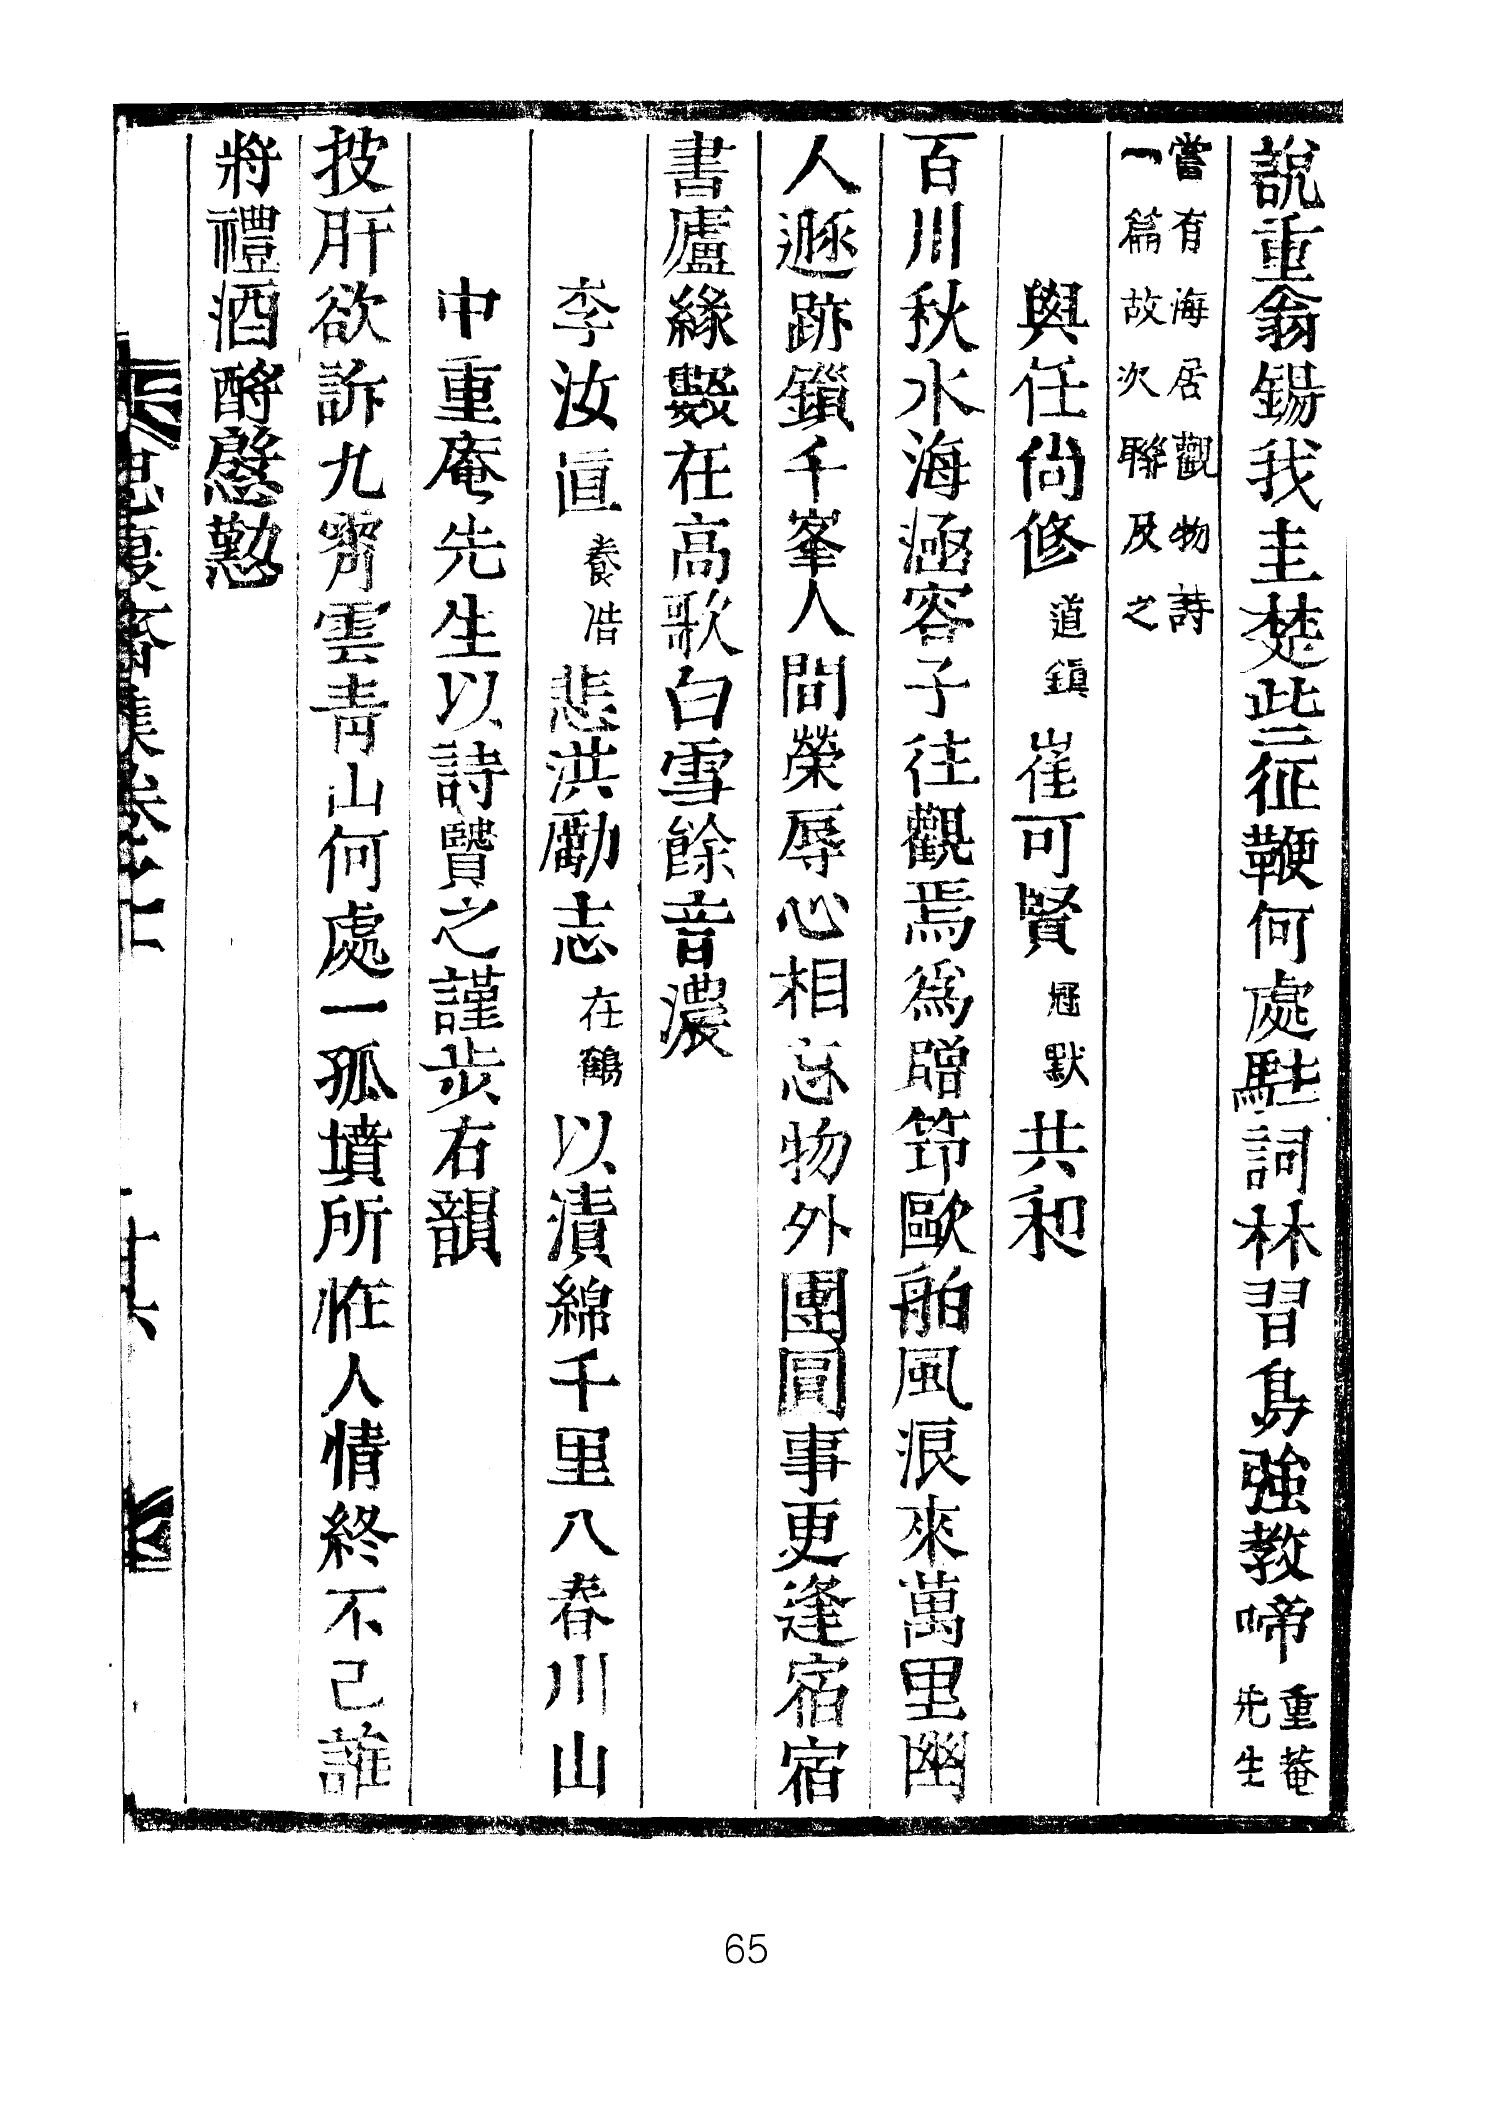 說重翁錫我圭楚些征鞭何處駐詞林習鳥強教啼重菴先生
嘗有海居觀物詩一篇故次聯及之
與任尙修道鎭崔可賢冠默共和
百川秋水海涵容子往觀焉爲贈筇歐舶風浪來萬里幽
人遯跡鎖千峯人間榮辱心相忘物外團圓事更逢宿宿
書廬緣數在高歌白雪餘音濃
李汝直養浩悲洪勵志在鶴以漬綿千里入春川山
中重庵先生以詩贒之謹步右韻
披肝欲訴九霄雲靑山何處一孤墳所恠人情終不已誰
將禮酒酹慇懃
思復齋集卷之上
十六
65